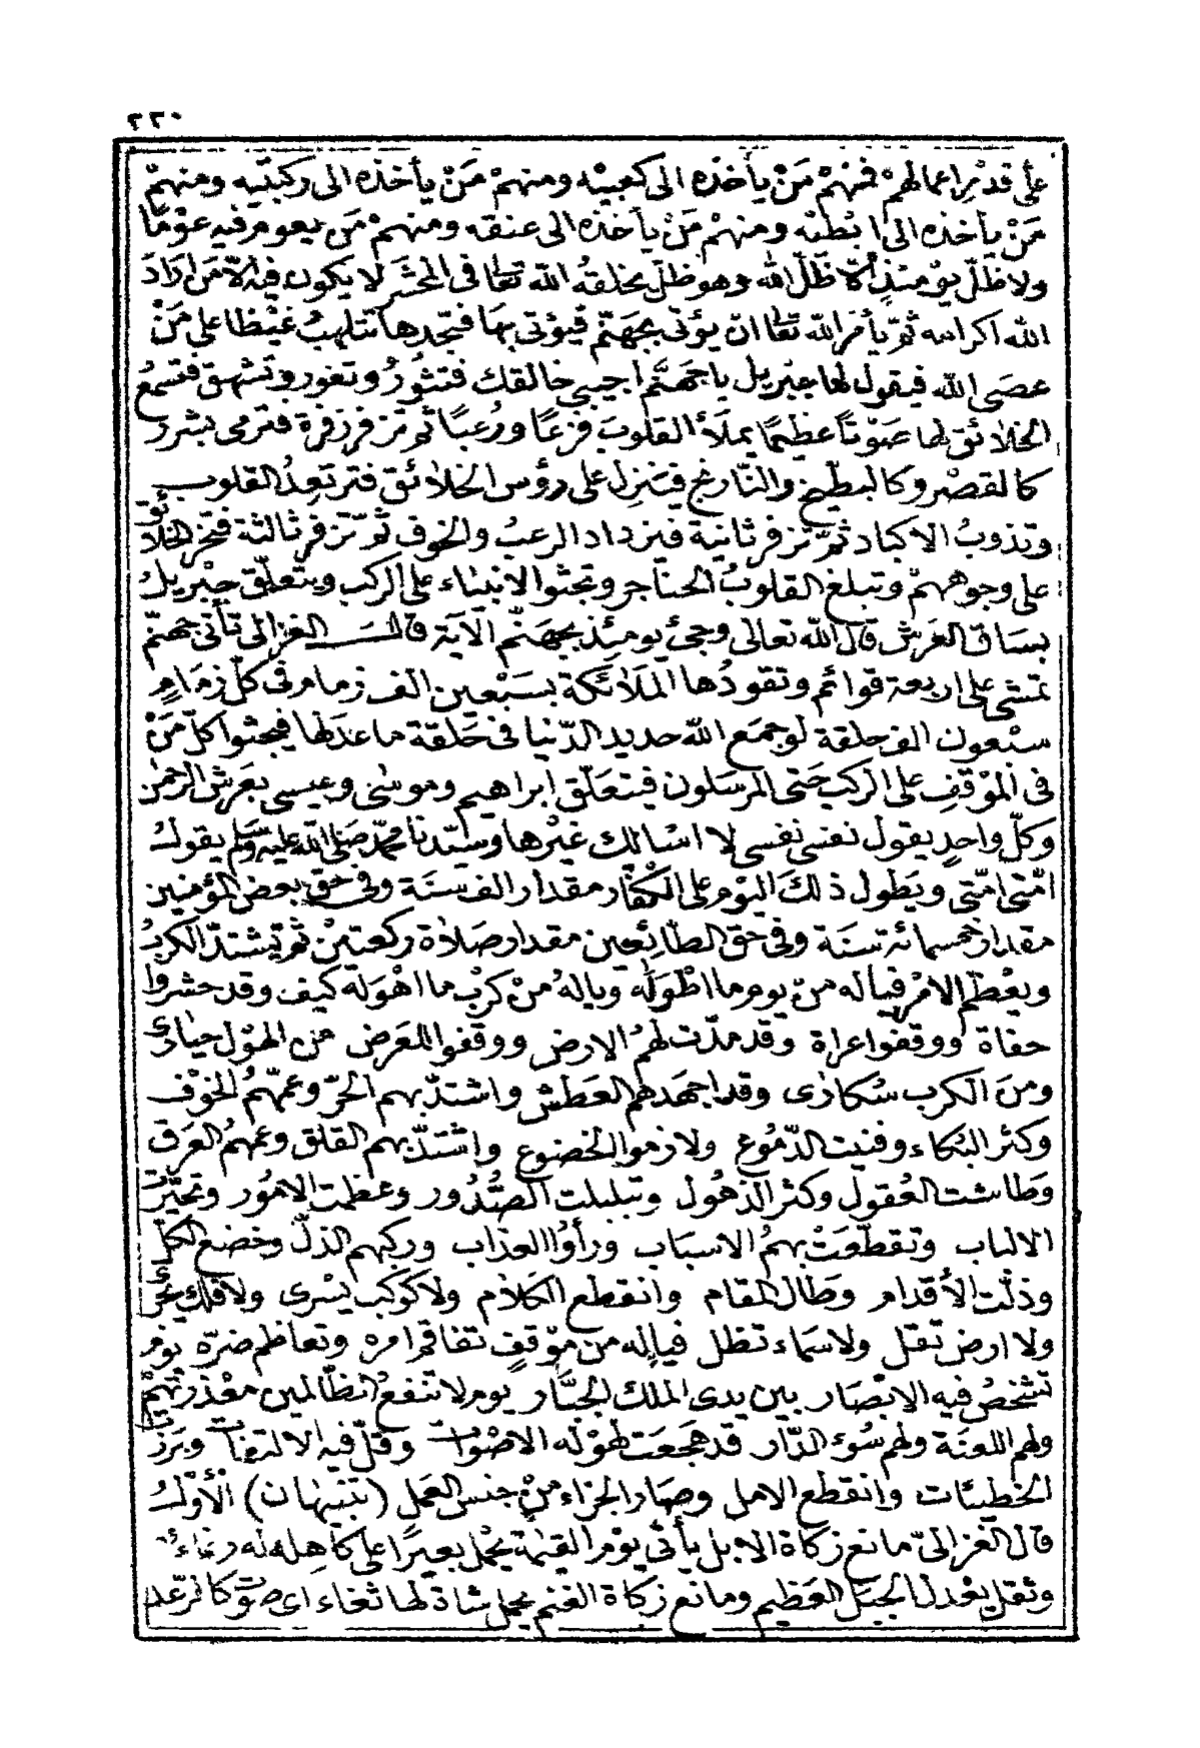 ٢٢٠
على قدر اعمالهم فمنهم من يأخذه الى كعبيه ومنهم من يأخذه الى ركبتيه ومنهم
من يأخذه الى ابطيه ومنهم من يأخذه الى عنقه ومنهم من يعوم فيه عوما
ولا ظل يومئذ الا ظل الله وهو ظل يخلقه الله تعالى فى المحشر لا يكون فيه الا من اراد
الله اكرامه ثم يأمر الله تعالى ان يؤتى بجهنم فيؤتى بها فتجدها تتلهب غيظا على من
عصى الله فيقول لها جبريل يا جهنم اجيبى خالقك فتثور وتفور وتشهق فتسمع
الخلائق لها صوتا عظيما يملأ القلوب فزعا ورعبا ثم تزفر زفرة فترمى بشرر
كالقصر وكالبطيخ والنارنج فينزل على رؤس الخلائق فترتعد القلوب
وتذوب الاكباد ثم تزفر ثانية فيزداد الرعب والخوف ثم تزفر ثالثة فتخر الخلائق
على وجوههم وتبلغ القلوب الحناجر وتجثوا الانبياء على الركب ويتعلق جبريل
بساق العرش قال الله تعالى وجئ يومئذ بجهنم الآية قال الغزالى تأتى جهنم
تمشى على اربعة قوائم وتقودها الملائكة بسبعين الف زمام فى كل زمام
سبعون الف حلقة لو جمع الله حديد الدنيا فى حلقة ما عدلها فيجثوا كل من
فى الموقف على الركب حتى المرسلون فيتعلق ابراهيم وموسى وعيسى بعرش الرحمن
وكل واحد يقول نفسى نفسى لا اسالك غيرها وسيدنا محمد صلى الله عليه وسلم يقول
امتى امتى ويطول ذلك اليوم على الكفار مقدار الف سنة وفى حق بعض المؤمنين
مقدار خمسمائة سنة وفى حق الطائعين مقدار صلاة ركعتين ثم يشتد الكرب
ويعظم الامر فياله من يوم ما اطوله وياله من كرب ما اهوله كيف وقد حشروا
حفاة ووقفوا عراة وقد مدت لهم الارض ووقفوا للعرض من الهول حيارى
ومن الكرب سكارى وقد اجهدهم العطش واشتد بهم الحر وعمهم الخوف
وكثر البكاء وفنيت الدموع ولازموا الخضوع واشتد بهم القلق وعمهم العرق
وطاشت العقول وكثر الذهول وتبلبلت الصدور وعظمت الامور وتحيرت
الالباب وتقطعت بهم الاسباب ورأوا العذاب وركبهم الذل وخضع الكل
وذلت الأقدام وطال المقام وانقطع الكلام ولا كوكب يسرى ولا فلك يجرى
ولا ارض تقل ولا سماء تظل فياله من موقف تفاقم امره وتعاظم ضره يوم
تشخص فيه الابصار بين يدى الملك الجبار يوم لا تنفع الظالمين معذرتهم
ولهم اللعنة ولهم سوء الدار قد هجعت لهوله الاصوات وقل فيه الالتفات وبرزت
الخطيئات وانقطع الامل وصار الجزاء من جنس العمل (تنبيهان) الأول
قال الغزالى مانع زكاة الابل يأتى يوم القيمة يحمل بعيرا على كاهله له رغاء
وثقل يعدل الجبل العظيم ومانع زكاة الغنم يحمل شاة لها ثغاء اى صوت كالرعد